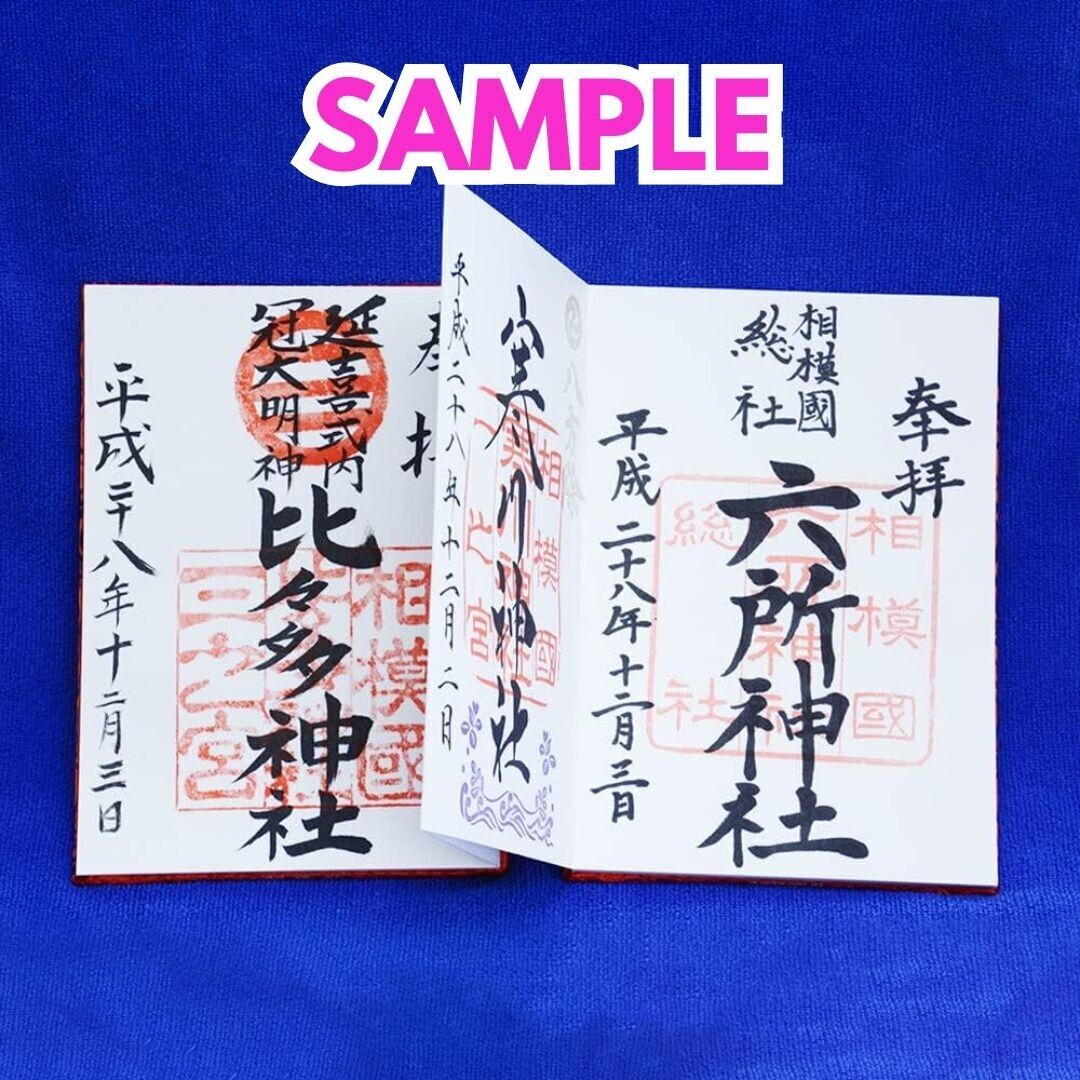 SAMPLE
奉拝
相模國
総社
六所神社
平成二十八年十二月三日
相模國
総社
寒川神社
相模國
一之宮
平成二十八年十二月二日
奉拝
延喜式内
冠大明神
比々多神社
相模國
三之宮
平成二十八年十二月三日